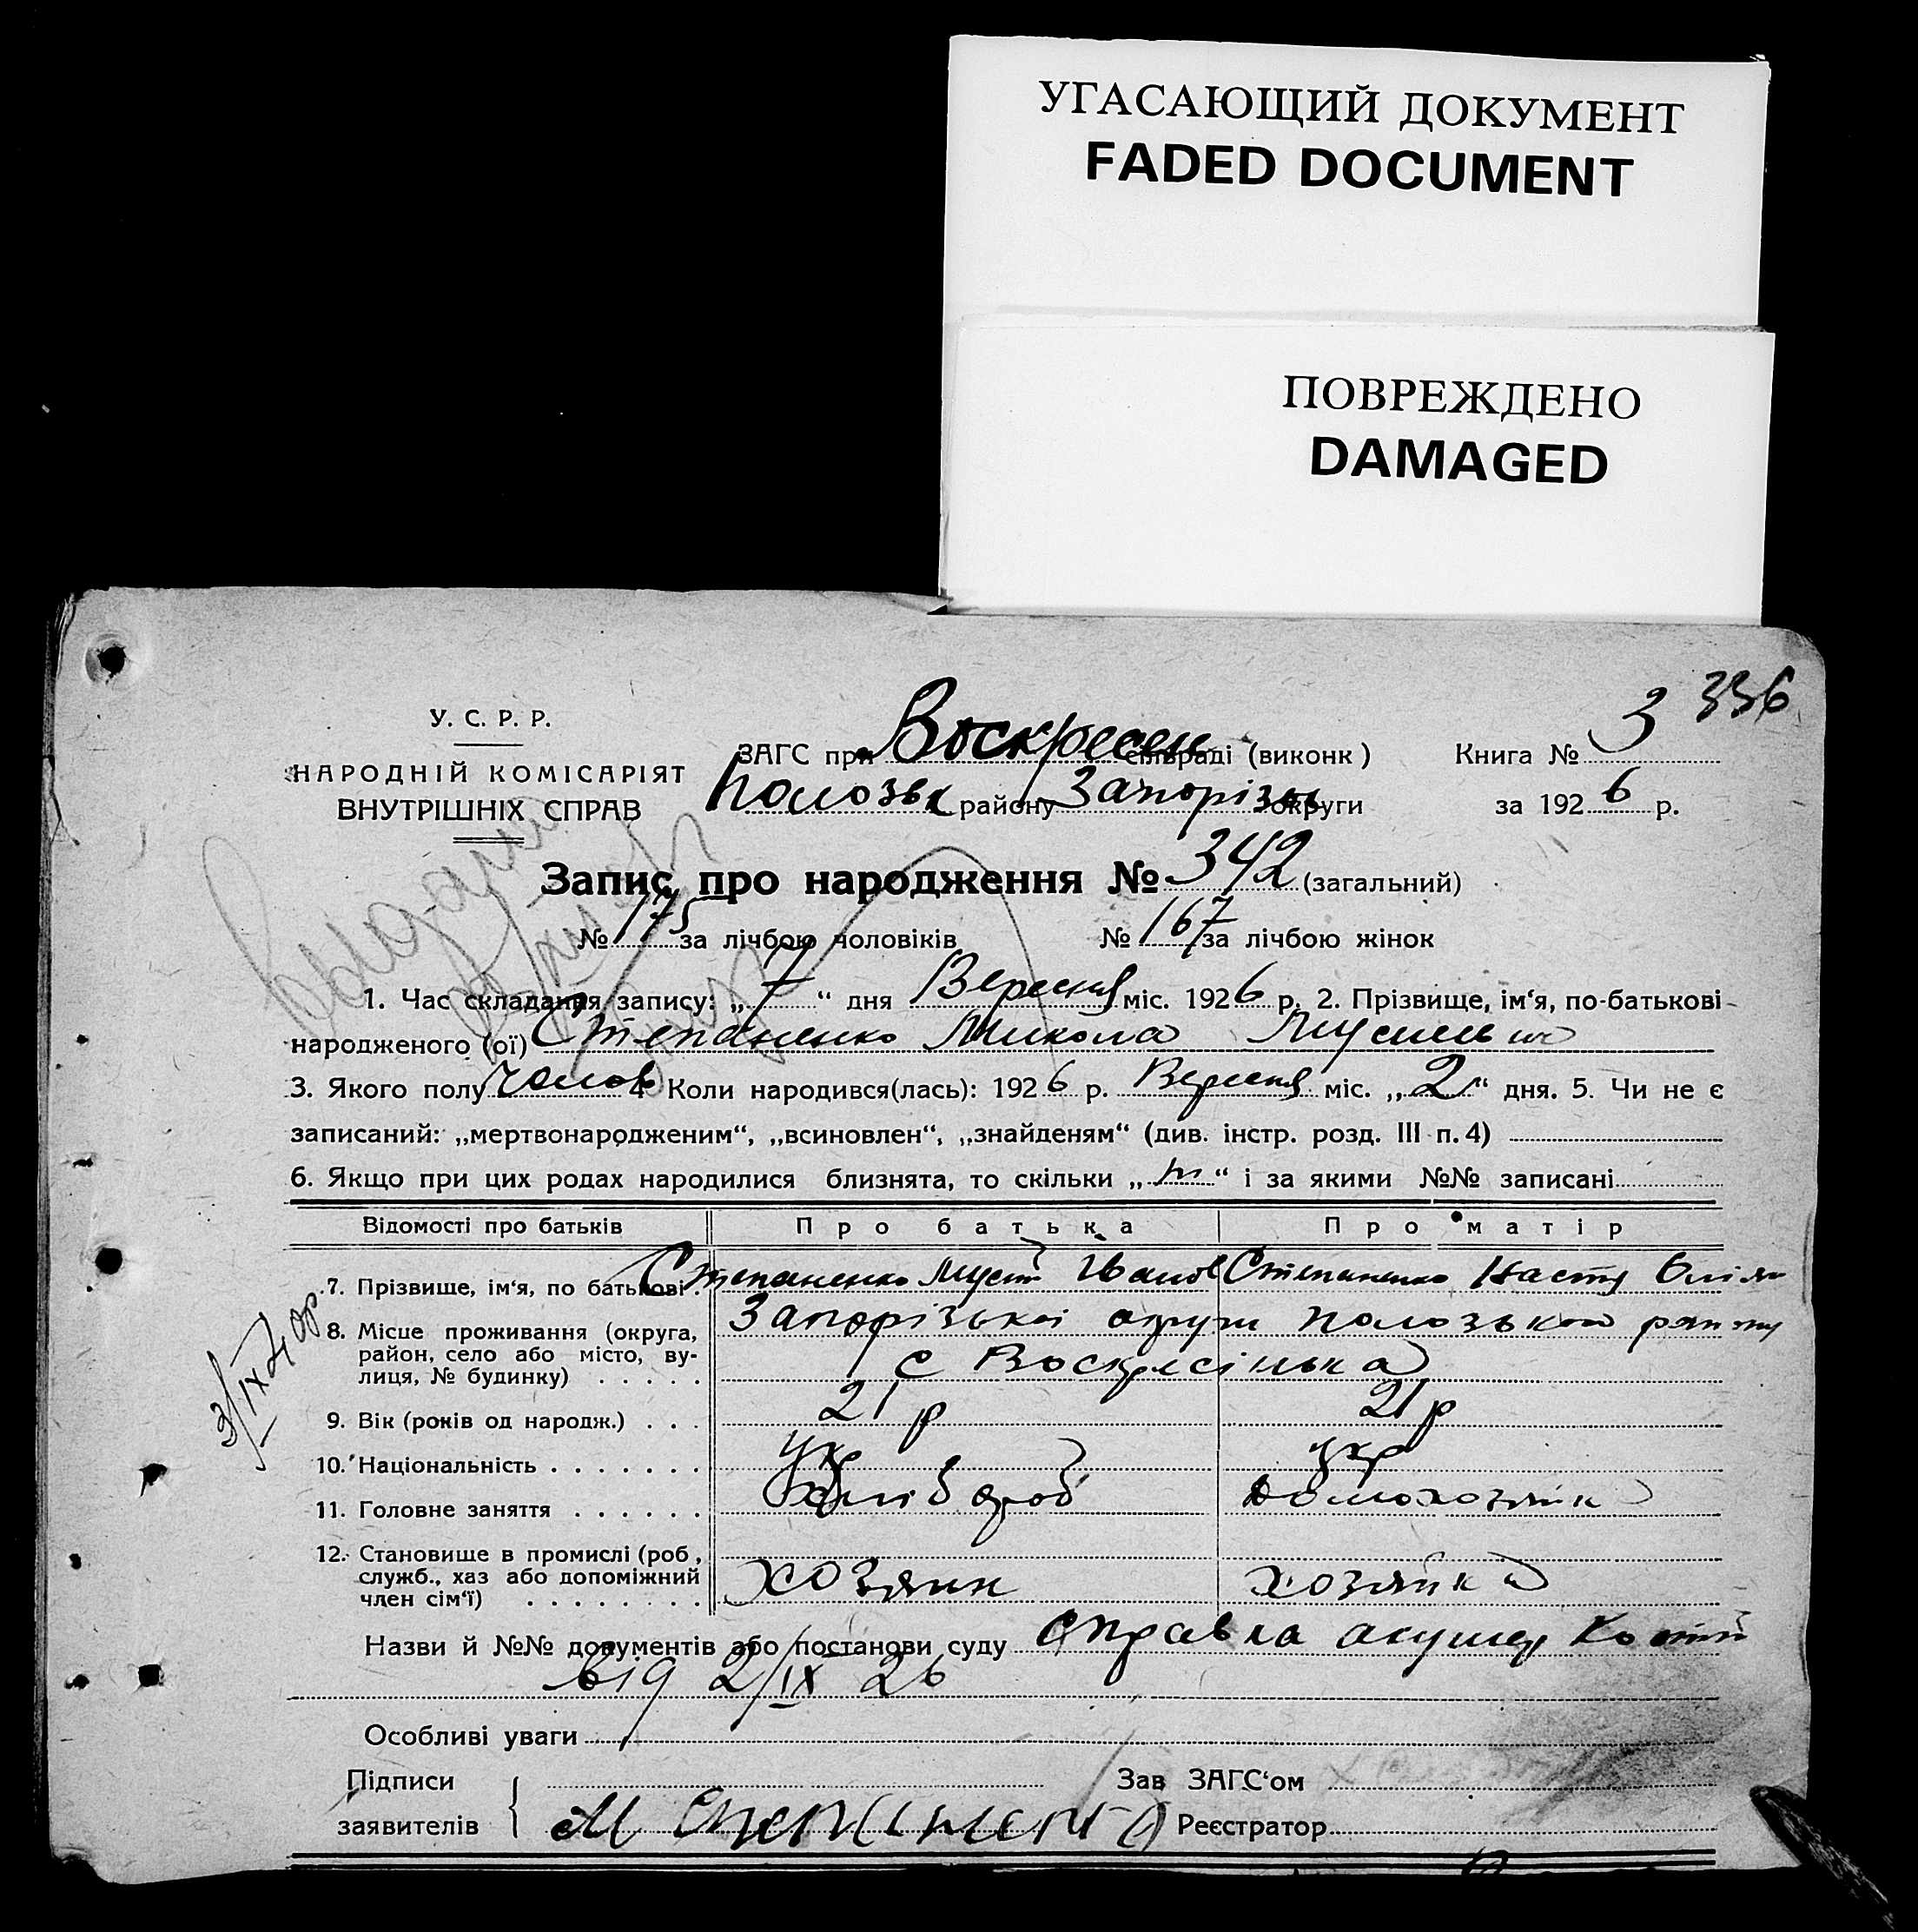 УГАСАЮЩИЙ ДОКУМЕНТ
FADED DOCUMENT
ПОВРЕЖДЕНО
DAMAGED
336
У. С. Р. Р.
НАРОДНІЙ КОМІСАРІЯТ
ВНУТРІШНІХ СПРАВ
ЗАГС при Воскресен сільраді (виконк) Книга № 3
Полозьк району Запорізьк округи за 1926 р.
Запис про народження № 342 (загальний)
№ 175 за лічбою чоловіків № 167 за лічбою жінок
1. Час складання запису: „7“ дня Вересня міс. 1926 р. 2. Прізвище, ім‘я, по-батькові
народженого (ої) Степаненко Микола
3. Якого полу чолов 4 Коли народився(лась): 1926 р. Вересня міс. „2“ дня. 5. Чи не є
записаний: „мертвонародженим“, „всиновлен“, „знайденям“ (див. інстр. розд. III п. 4)
6. Якщо при цих родах народилися близнята, то скільки „ “ і за якими №№ записані
Відомості про батьків Про батька Про матір
7. Прізвище, ім‘я, по батькові Степаненко Мусій Іванов Степаненко Настя
8. Місце проживання (округа, район, село або місто, ву-
лиця, № будинку) Запорізької округи Полозької району
с Воскресінька
9. Вік (років од народж.) 21 р 21 р
10. Національність укр укр
11. Головне заняття хлібороб домохозяйк
12. Становище в промислі (роб,
служб., хаз або допоміжний
член сім‘ї) хозяин хозяйка
Назви й №№ документів або постанови суду справка акушер
від 2/IX 26
Особливі уваги
Підписи Зав ЗАГС‘ом
заявителів М Степаненко Реєстратор